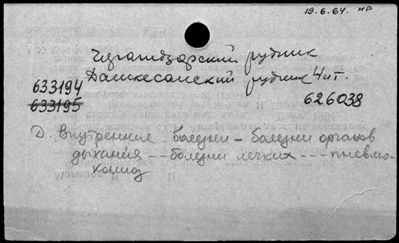 19.6.64. нр
Чирагидзорский рудник
Дашкесанский рудник Чит.
633194
633195
626038
Д. Внутренние болезни – болезни органов
дыхания -- болезни легких --- пневмо-
кониоз